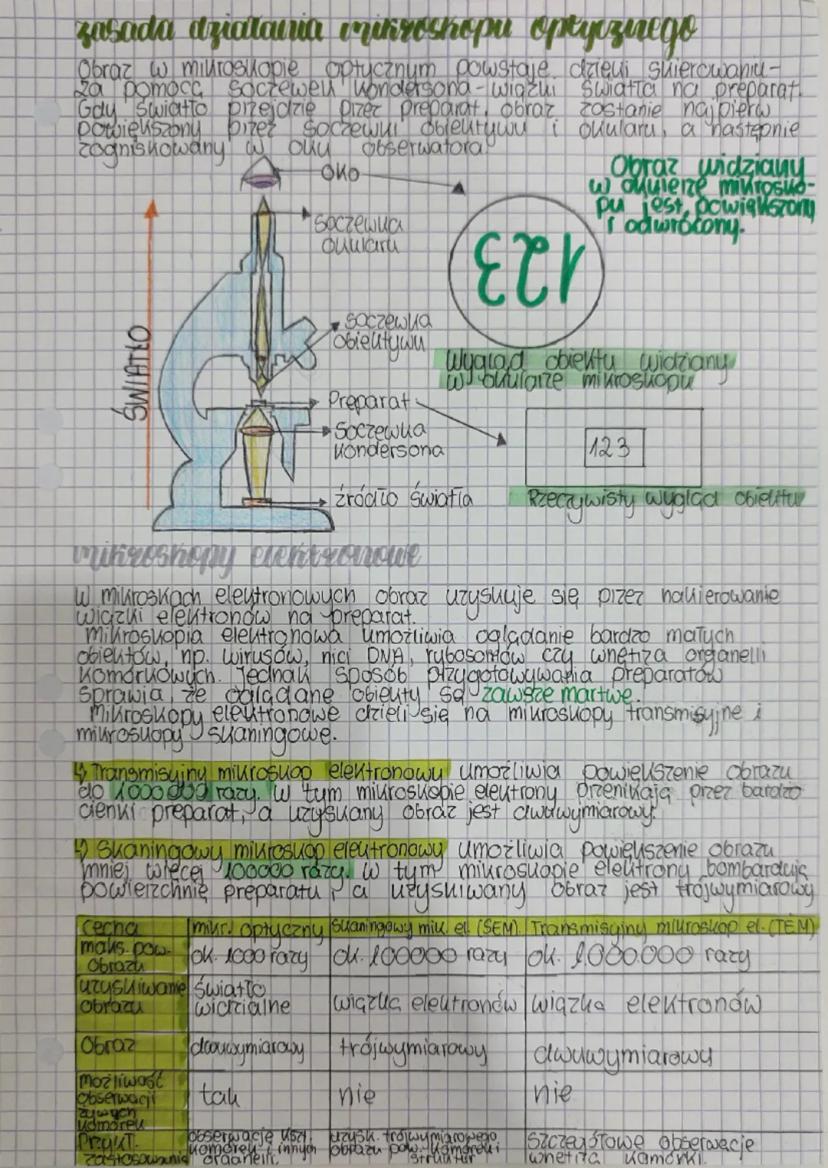 zasada działania mikroskopu optycznego
Obraz w mikroskopie optycznym powstaje dzięki skierowaniu-
za pomocą soczewek kondersona-wiązki światła na preparat.
Gdy światło przejdzie przez preparat, obraz zostanie najpierw
powiększony przez soczewki obiektywu i okularu, a następnie
zogniskowany w oku obserwatora.
oko
Obraz widziany
w okularze mikrosko-
pu jest powiększony
i odwrócony.
soczewka
okularu
123
ŚWIATŁO
soczewka
obiektywu
Wygląd obiektu widziany
w okularze mikroskopu
Preparat
soczewka
kondersona
123
źródło światła
Rzeczywisty wygląd obiektu
mikroskopy elektronowe
W mikroskach elektronowych obraz uzyskuje się przez nakierowanie
wiązki elektronów na preparat.
Mikroskopia elektronowa umożliwia oglądanie bardzo małych
obiektów, np. wirusów, nici DNA, rybosomów czy wnętrza organelli
komórkowych. Jednak sposób przygotowywania preparatów
sprawia, że oglądane obiekty są zawsze martwe.
Mikroskopy elektronowe dzieli się na mikroskopy transmisyjne i
mikroskopy skaningowe.
↳ Transmisyjny mikroskop elektronowy umożliwia powiększenie obrazu
do 1000 000 razy. W tym mikroskopie elektrony przenikają przez bardzo
cienki preparat, a uzyskany obraz jest dwuwymiarowy.
↳ Skaningowy mikroskop elektronowy umożliwia powiększenie obrazu
mniej więcej 100000 razy. W tym mikroskopie elektrony bombardują
powierzchnię preparatu, a uzyskiwany obraz jest trójwymiarowy
cecha mikr. optyczny skaningowy mik. el. (SEM) Transmisyjny mikroskop el. (TEM)
maks. pow. obrazu ok. 1000 razy ok. 100000 razy ok. 1.000.000 razy
uzyskiwanie obrazu światło widzialne wiązka elektronów wiązka elektronów
Obraz dwuwymiarowy trójwymiarowy dwuwymiarowy
możliwość obserwacji żywych komórek tak nie nie
Przykł. zastosowania obserwacje kszt. komórek i innych organelli. uzysk. trójwymiarowego obrazu pow. komórki i struktur szczegółowe obserwacje wnętrza komórki.